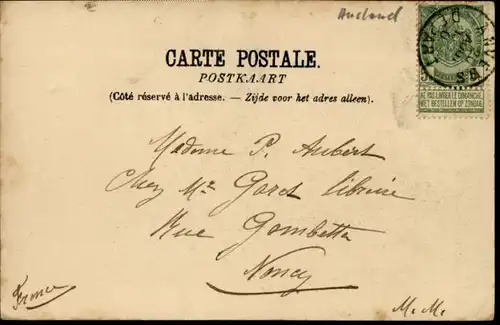 Ausland
CARTE POSTALE.
POSTKAART
(Côté réservé à l'adresse. — Zijde voor het adres alleen).
NE PAS LIVRER LE DIMANCHE
NIET BESTELLEN OP ZONDAG
Madame P. Aubert
Chez Mr Garot libraire
Rue Gambetta
Nancy
France
M. M.